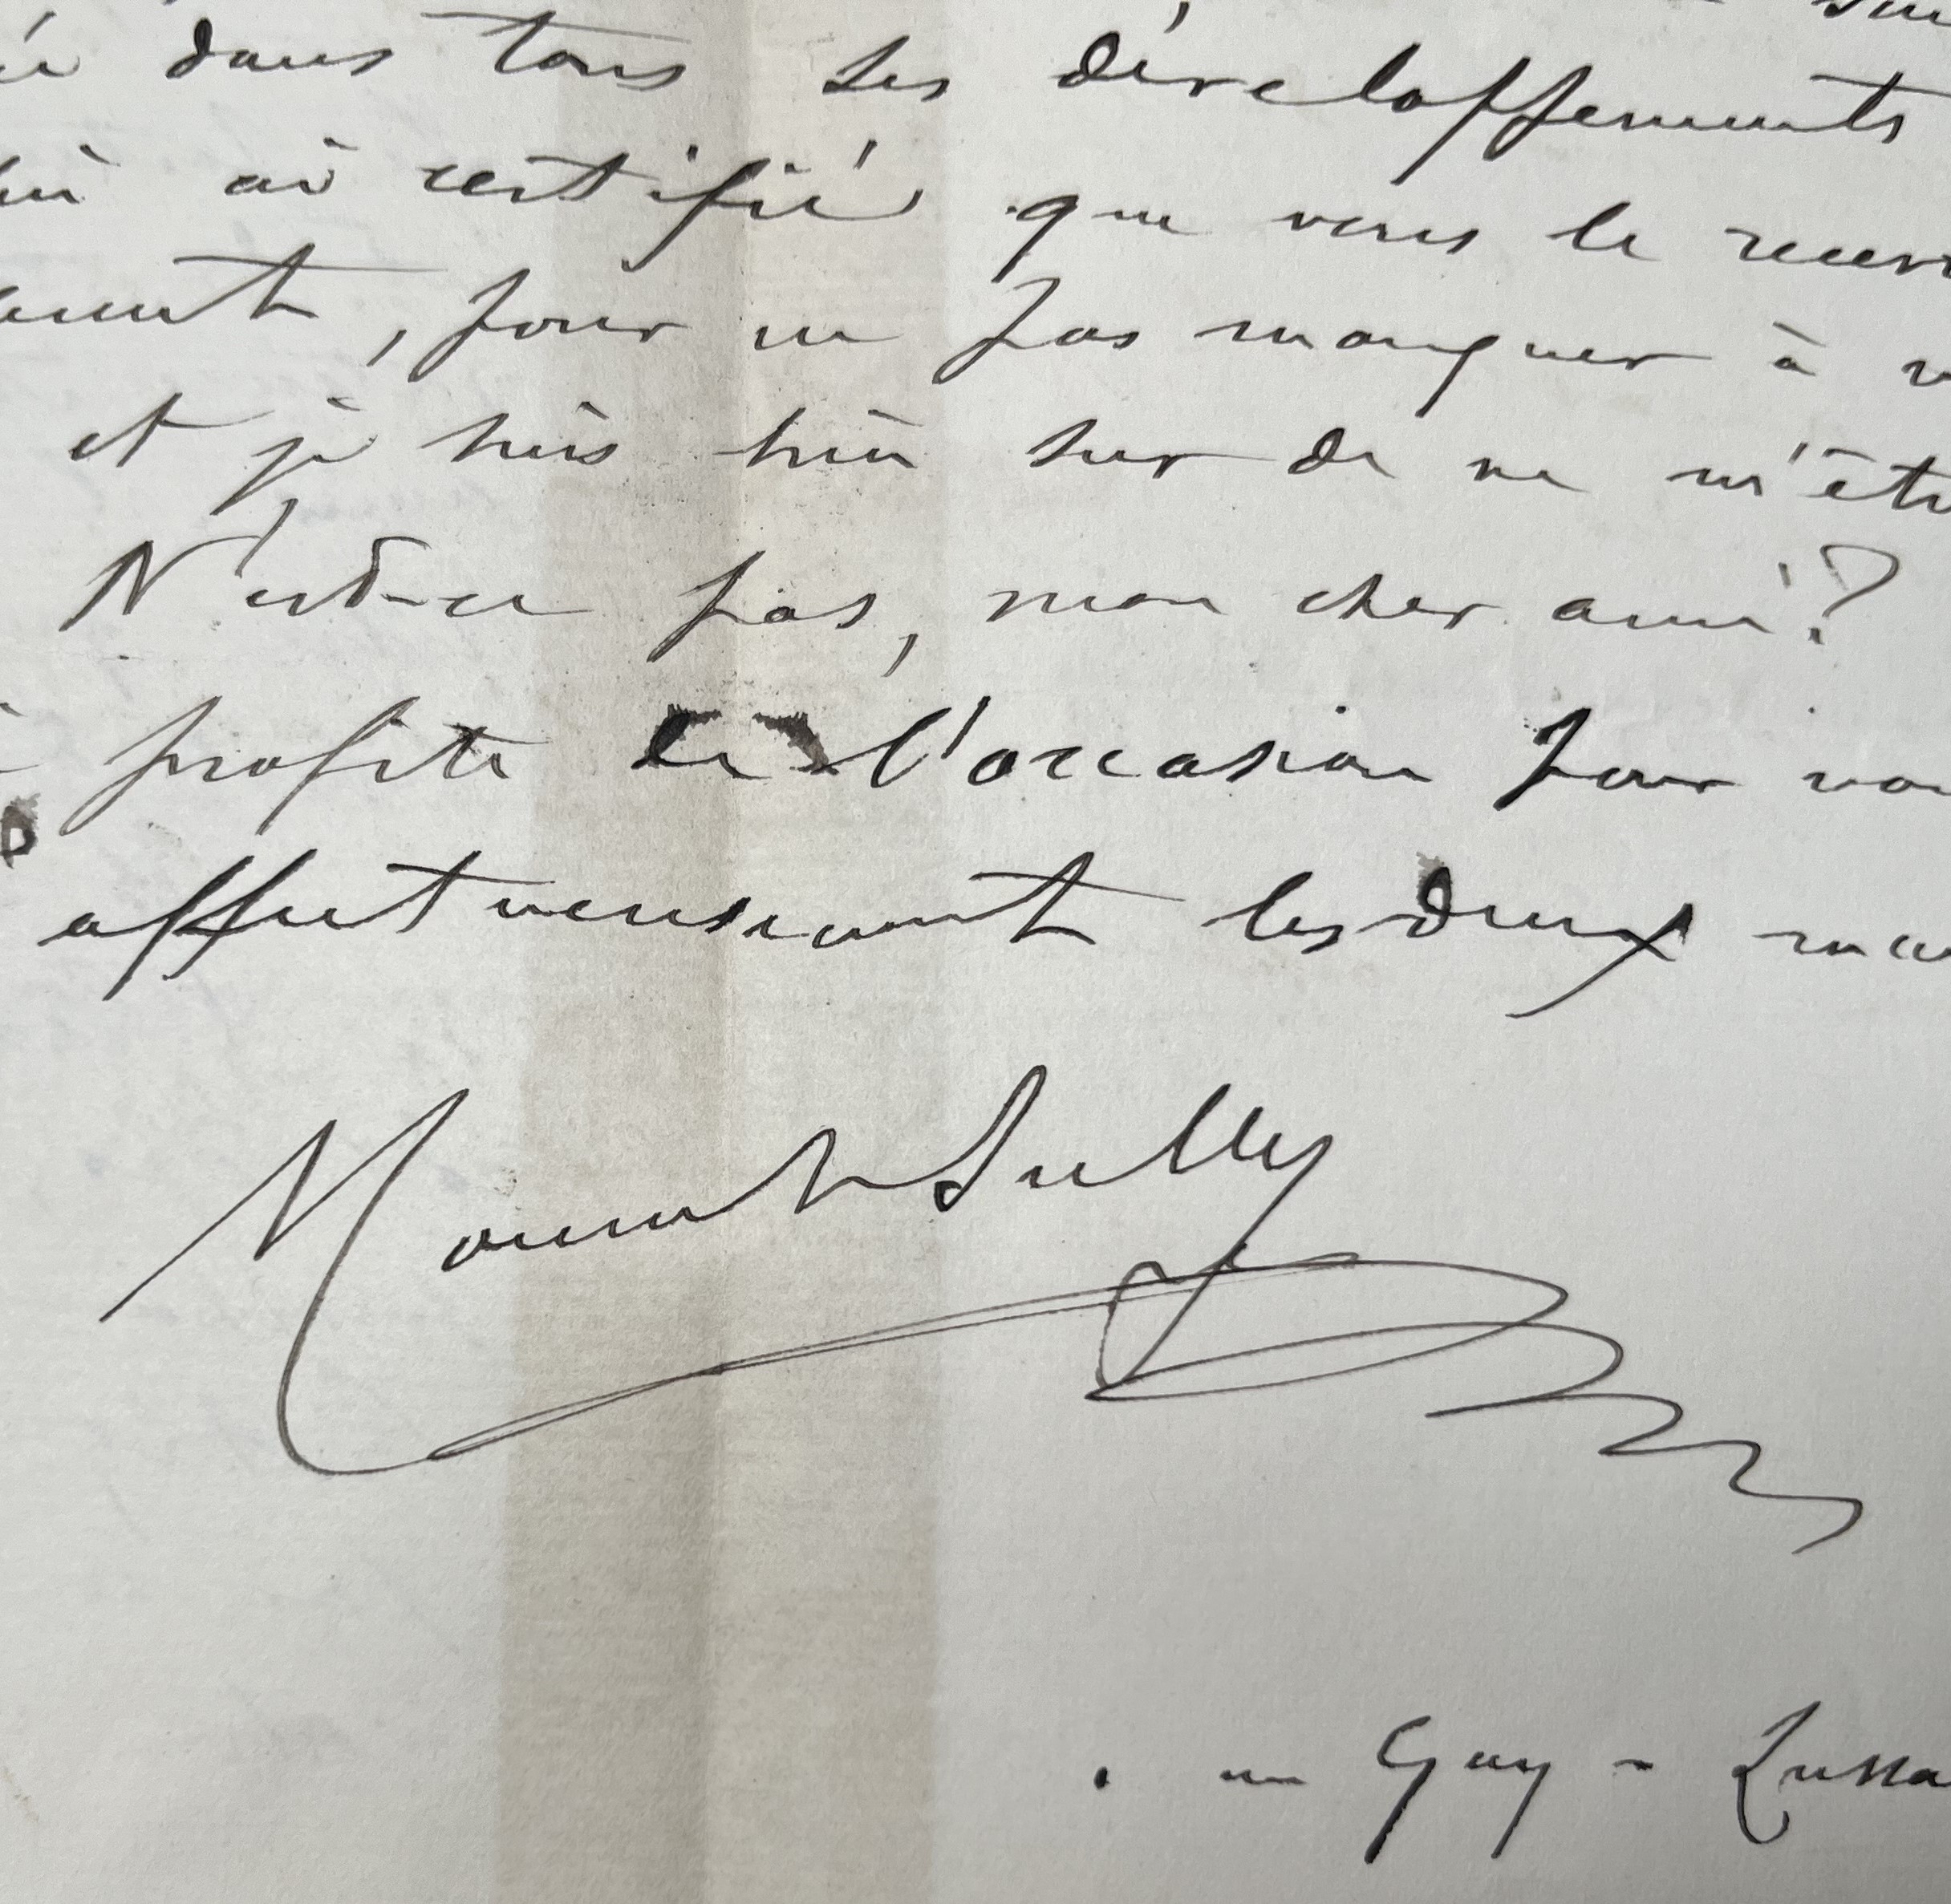 dans tous ses développements
ai certifié que vous le
, pour ne pas manquer à
et je suis bien sur de ne m'êtr
N'est-ce pas, mon cher ami?
profite de l'occasion pour vou
affectueusement les deux mai
Mounet Sully
Gay-Lussa